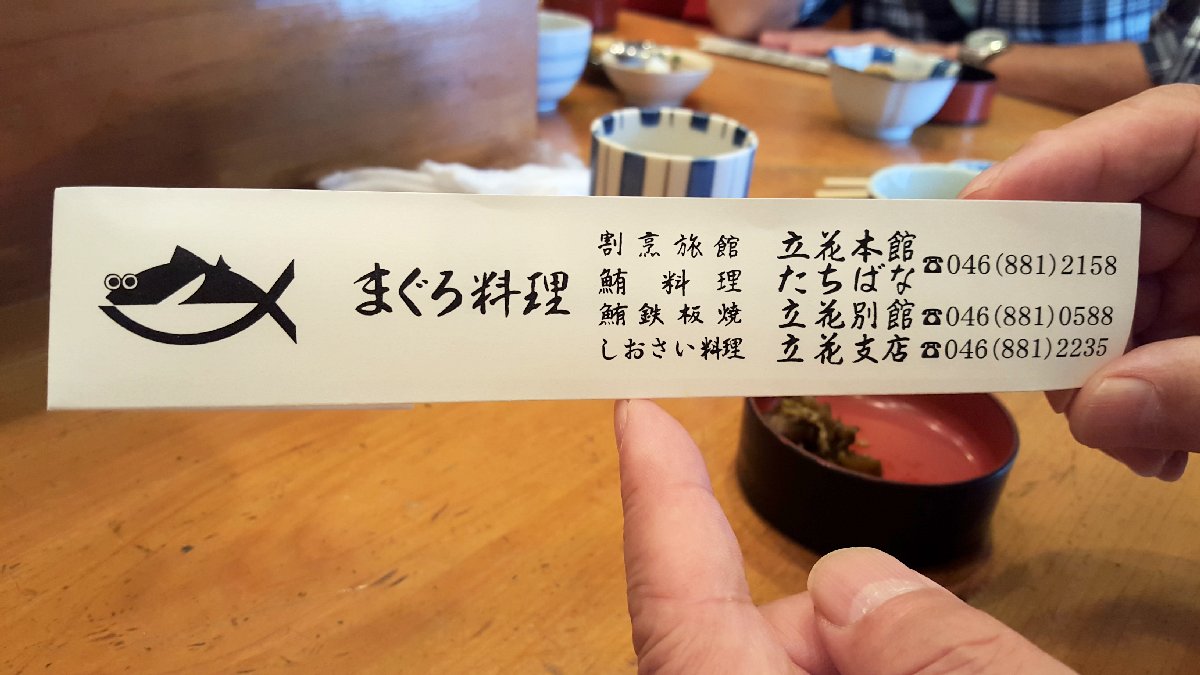 まぐろ料理
割烹旅館 立花本館
鮪料理 たちばな ☎046(881)2158
鮪鉄板焼 立花別館 ☎046(881)0588
しおさい料理 立花支店 ☎046(881)2235